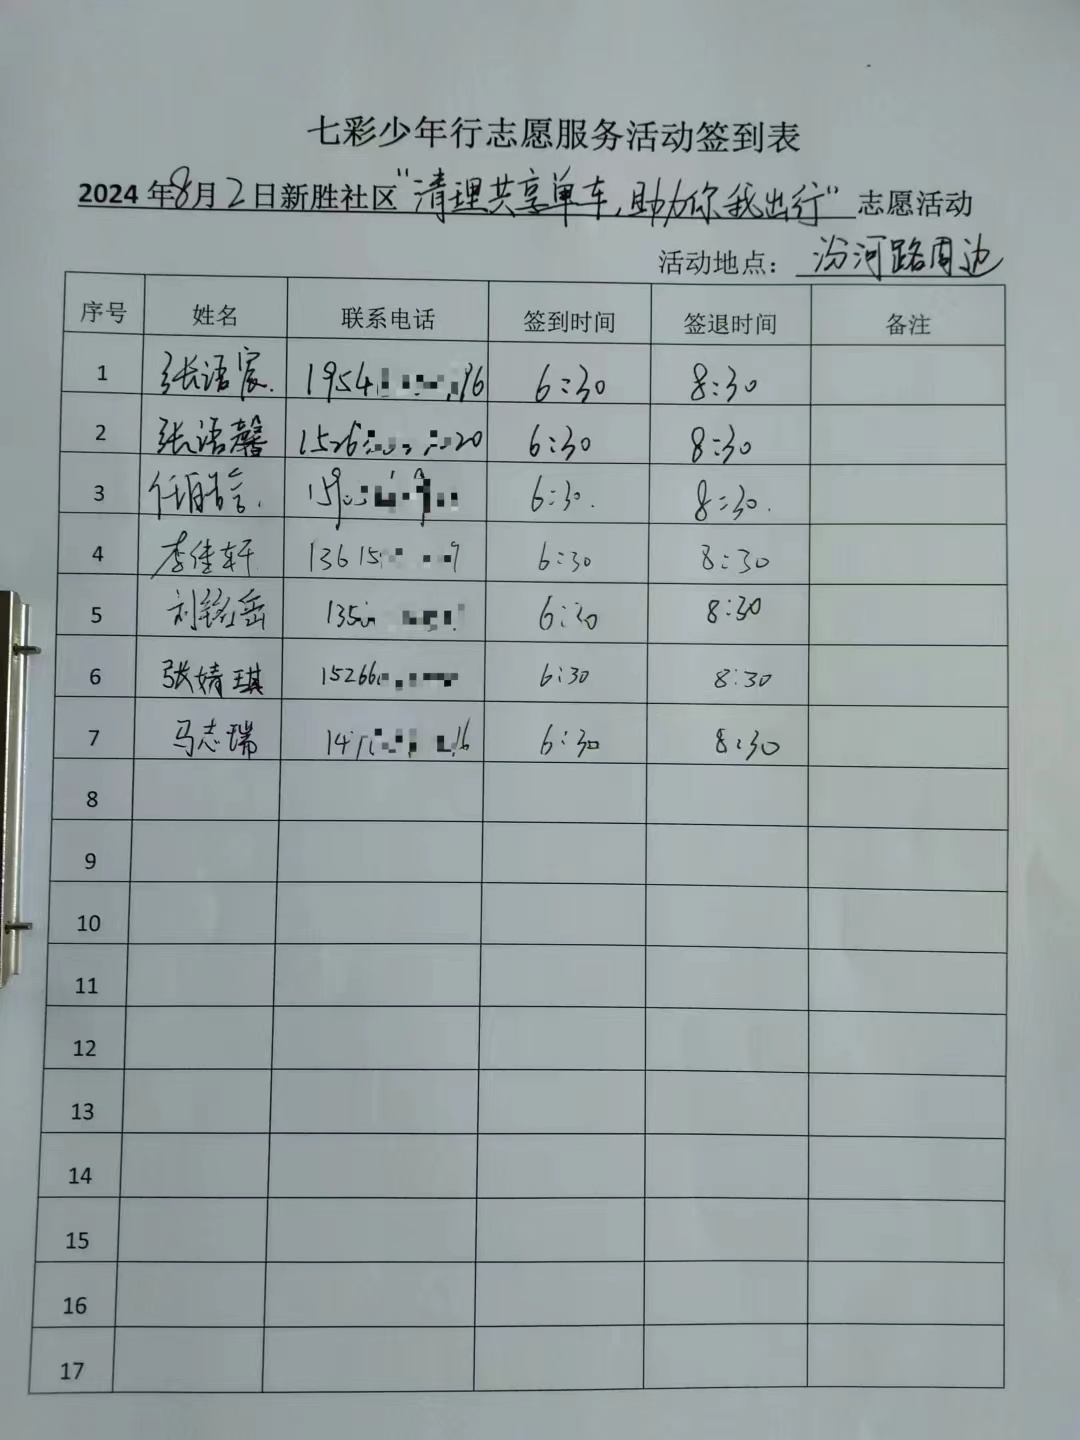 七彩少年行志愿服务活动签到表
2024年8月2日新胜社区“清理共享单车,助力你我出行”志愿活动
活动地点：汾河路周边
序号 姓名 联系电话 签到时间 签退时间 备注
1 张语宸. 1954 96 6:30 8:30
2 张语馨 1526 20 6:30 8:30
3 任 言. 159 6:30. 8:30.
4 李佳轩 13615 9 6:30 8:30
5 刘铭岳 135 6:30 8:30
6 张婧琪 15266 6:30 8:30
7 马志瑞 147 16 6:30 8:30
8
9
10
11
12
13
14
15
16
17